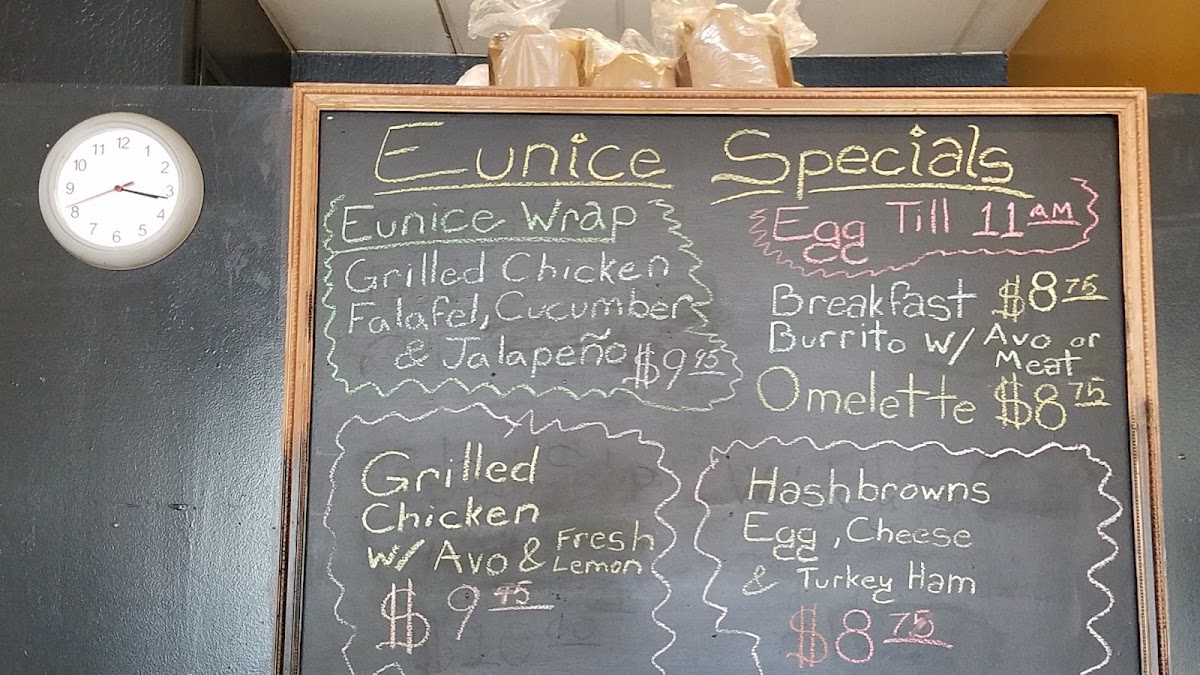 12
11 1
10 2
9 3
8 4
7 5
6
Eunice Specials
Eunice Wrap
Grilled Chicken
Falafel, Cucumber
& Jalapeño $9 95
Egg Till 11 AM
Breakfast $8 75
Burrito w/ Avo or
Meat
Omelette $8 75
Grilled
Chicken
w/ Avo & Fresh
Lemon
$9 95
Hashbrowns
Egg, Cheese
& Turkey Ham
$8 75